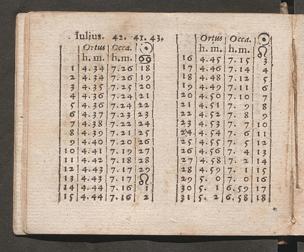 Iulius. 42. 41. 43.
Ortus Occa.
h. m. h. m.
1 4.34 7.26 18
2 4.34 7.26 19
3 4.35 7.25 20
4 4.36 7.24 21
5 4.36 7.24 22
6 4.37 7.23 23
7 4.38 7.22 24
8 4.39 7.21 25
9 4.40 7.20 26
10 4.41 7.19 27
11 4.42 7.18 28
12 4.43 7.17 29
13 4.43 7.17
14 4.44 7.16 1
15 4.44 7.16 2
Ortus Occa.
h. m. h. m.
16 4.45 7.15 3
17 4.46 7.14 4
18 4.47 7.13 5
19 4.48 7.12 6
20 4.49 7.11 7
21 4.50 7.10 8
22 4.51 7.9 8
23 4.52 7.8 9
24 4.54 7.6 10
25 4.55 7.5 11
26 4.56 7.4 12
27 4.58 7.2 14
28 4.59 7.1 15
29 5.0 7.0 16
30 5.1 6.59 17
31 5.2 6.58 18